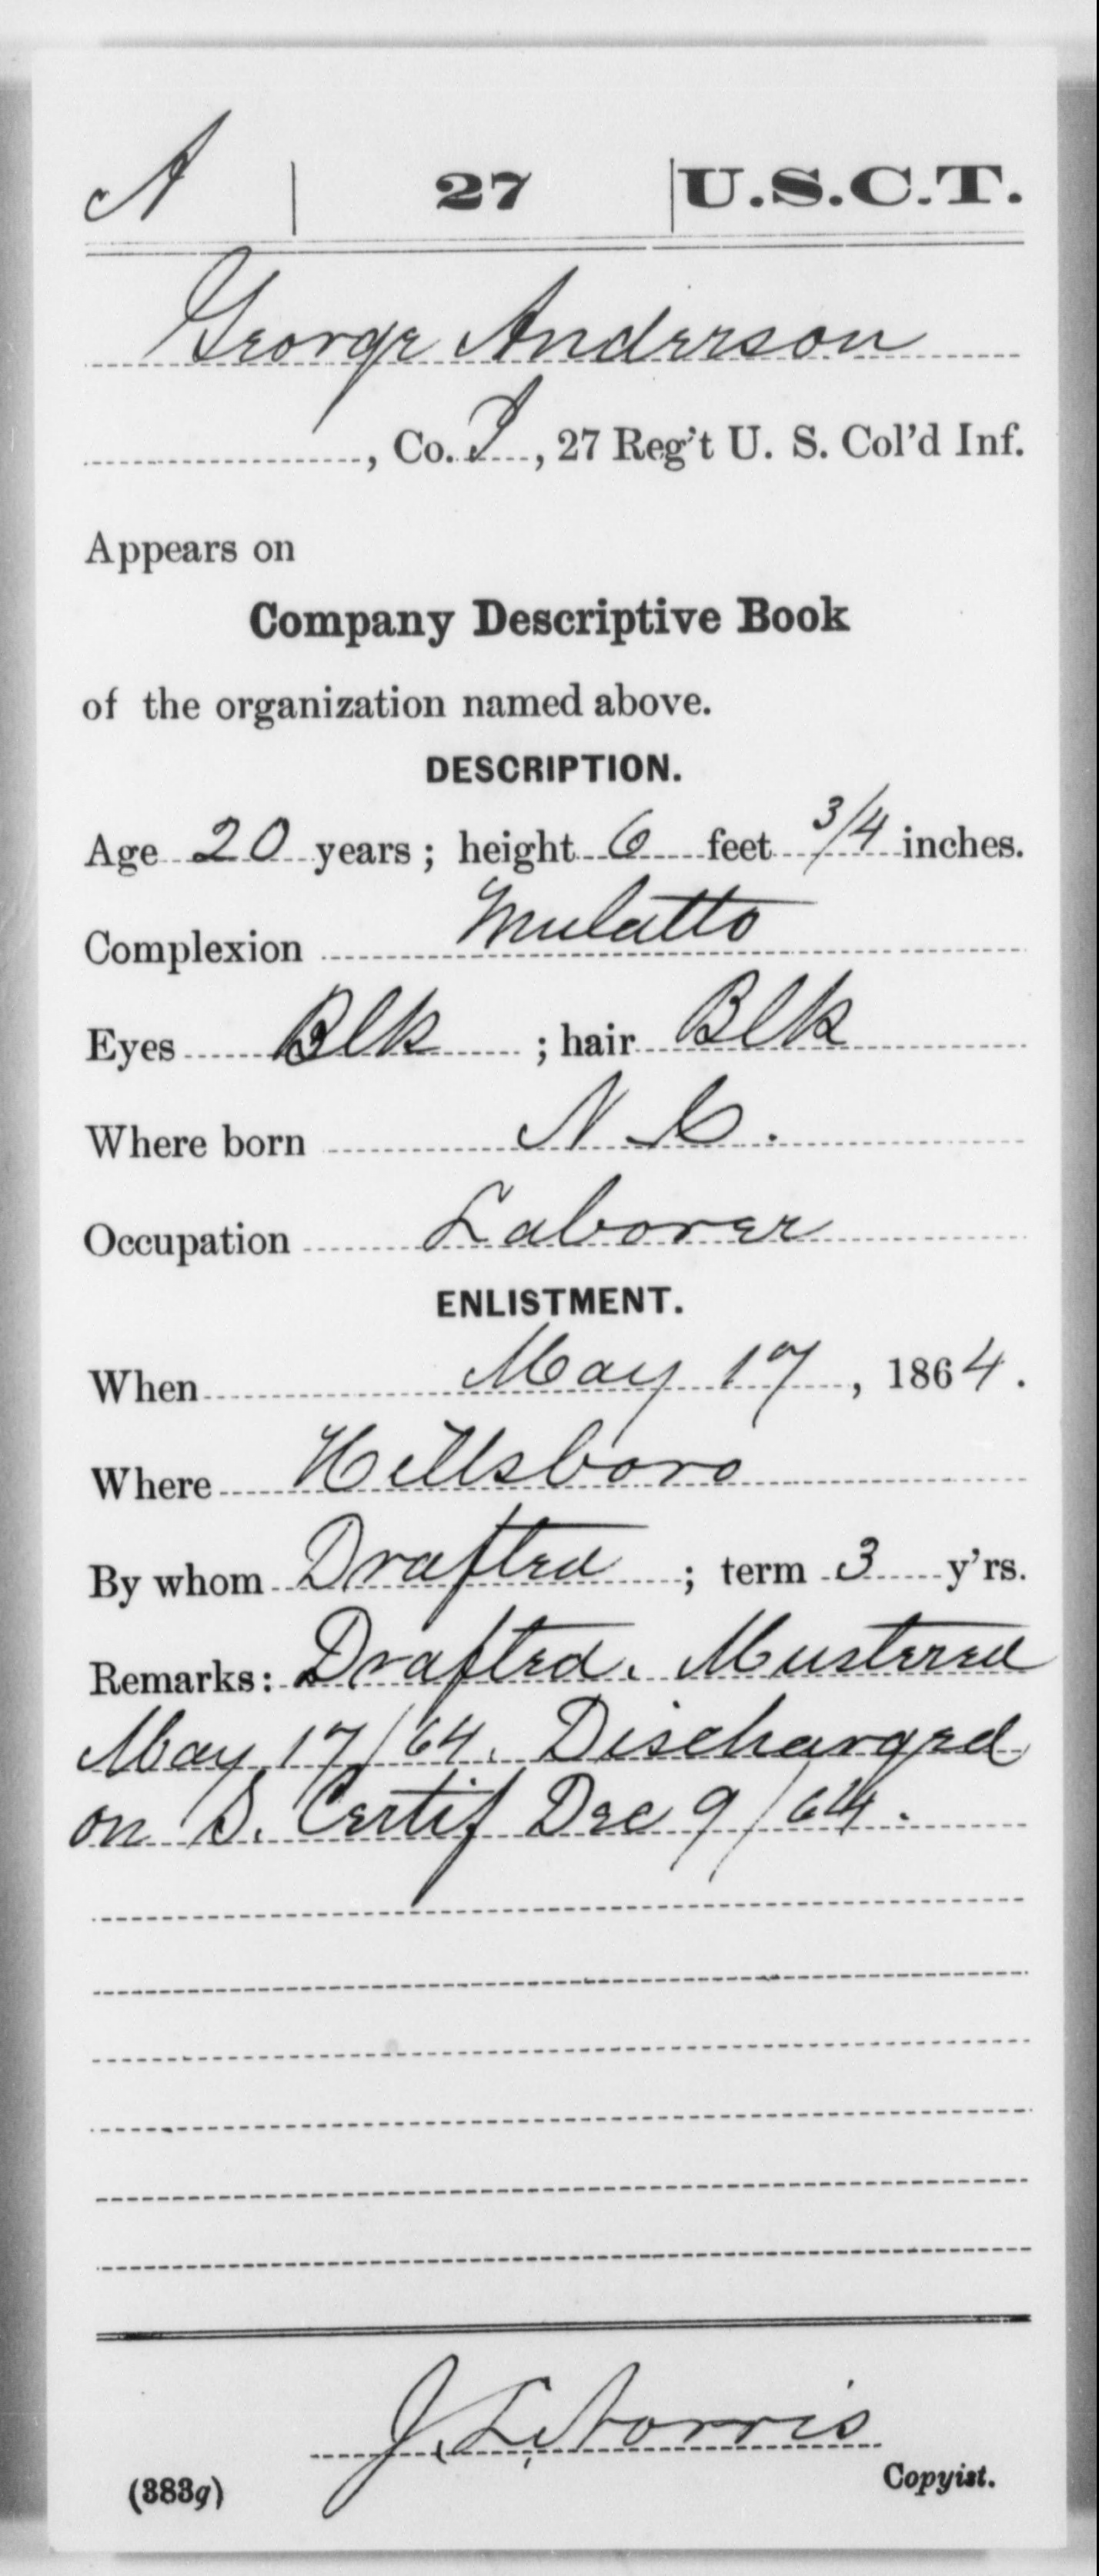 A | 27 | U.S.C.T.
George Anderson
, Co. I, 27 Reg't U. S. Col'd Inf.
Appears on
Company Descriptive Book
of the organization named above.
DESCRIPTION.
Age 20 years; height 6 feet 3/4 inches.
Complexion Mulatto
Eyes Blk ; hair Blk
Where born N.C.
Occupation Laborer
ENLISTMENT.
When May 17, 1864.
Where Hillsboro
By whom Drafted ; term 3 y'rs.
Remarks: Drafted. Mustered
May 17/64. Discharged
on S. Certif Dec 9/64.
J. L. Norris
Copyist.
(383g)